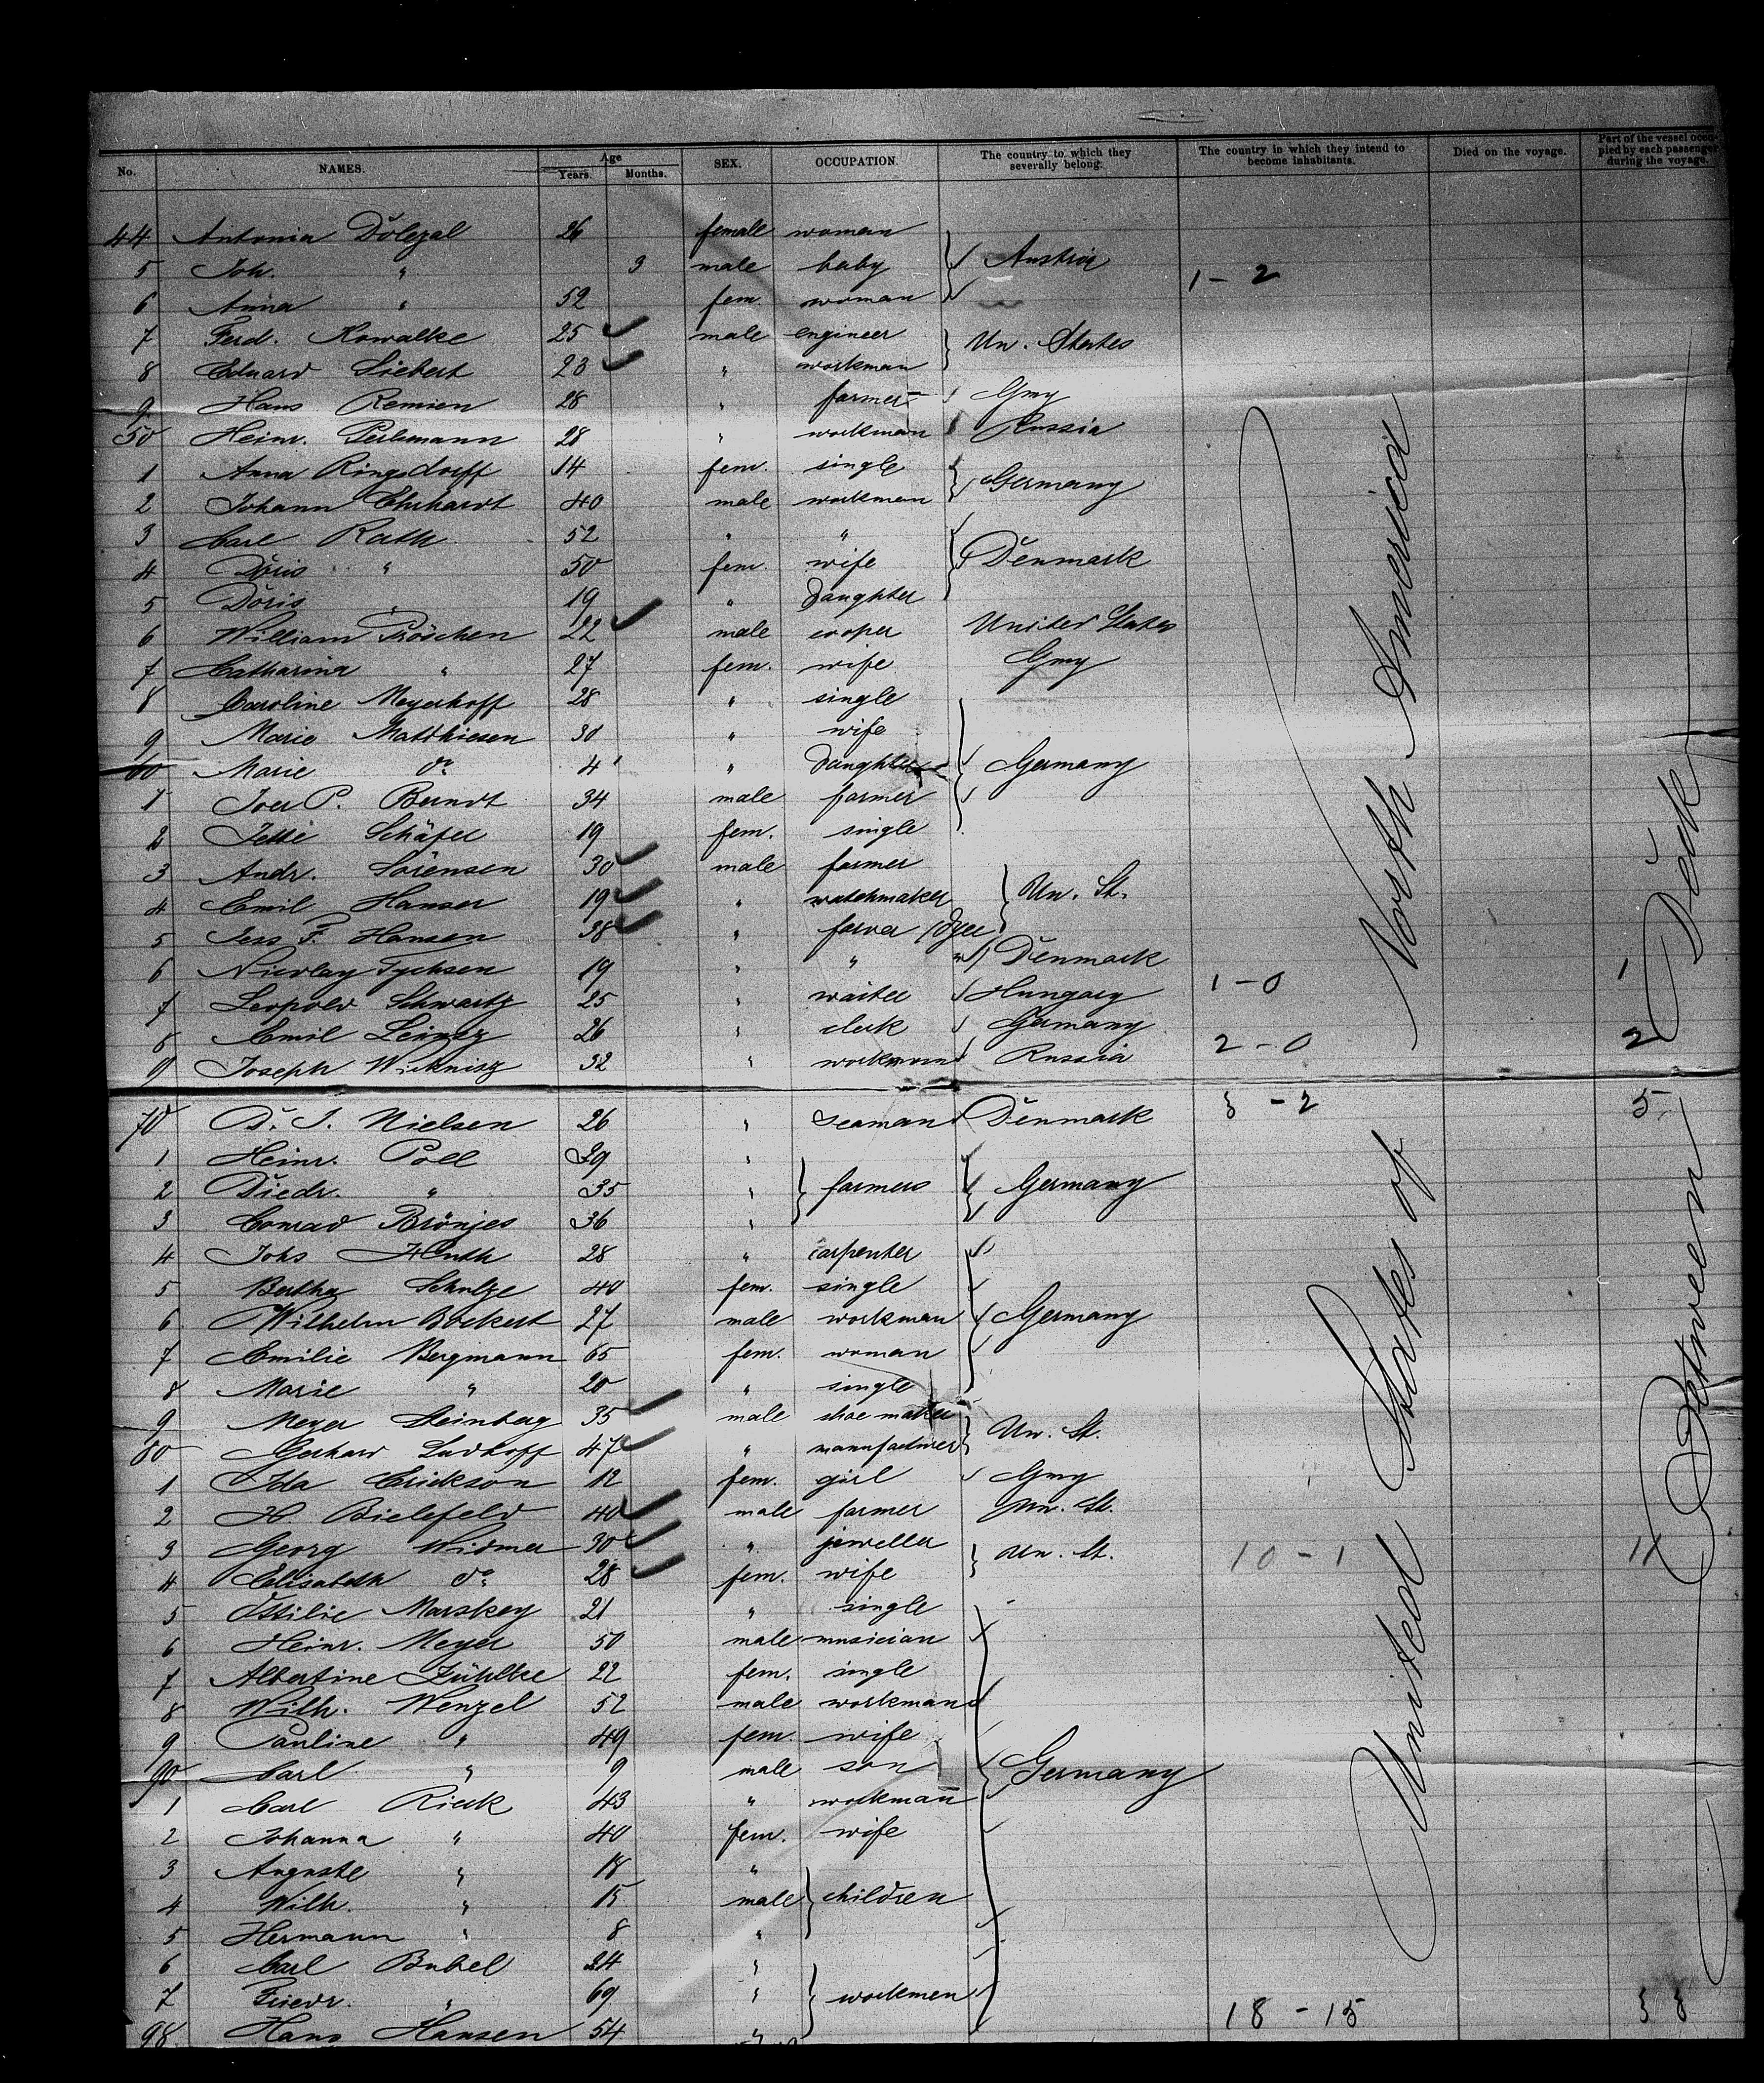 No. NAMES. Age Years. Months. SEX. OCCUPATION. The country to which they severally belong. The country in which they intend to become inhabitants. Died on the voyage. Part of the vessel occupied by each passenger during the voyage.
44 Antonia Dolezal 26 female woman
5 Joh. " 3 male baby Austria 1 - 2
6 Anna " 52 fem. woman
7 Ferd. Kowalke 25 male engineer Un. States
8 Eduard Siebert 23 " workman
9 Hans Remien 28 " farmer Gmy
50 Heinr. 28 " workman Russia
1 Anna Ringsdorff 14 fem. single Germany
2 Johann Ehrhardt 40 male workman
3 Carl Rath 52 " "
4 Doris " 50 fem. wife Denmark
5 Doris " 19 " daughter
6 William Pröschen 22 male cooper United States
7 Catharina " 27 fem. wife Gmy
8 Caroline Meyerhoff 28 " single
9 Marie Matthiesen 30 " wife
60 Marie do 4 " daughter Germany
1 P. Berndt 34 male farmer
2 Jette Schäfer 19 fem. single
3 Andr. Sörensen 30 male farmer
4 Emil Hanser 19 " watchmaker Un. St.
5 Jess F. Hansen 38 " dyer
6 Nicolay Tychsen 19 " " Denmark
7 Leopold Schwartz 25 " waiter Hungary 1 - 0 1
8 Emil 26 " clerk Germany
9 Joseph 32 " workman Russia 2 - 0 2
70 D. J. Nielsen 26 " seaman Denmark 3 - 2 5
1 Heinr. Poll 29 "
2 Diedr. " 35 " farmers Germany
3 Conrad Brönjes 36 "
4 Johs Huth 28 " carpenter
5 Bertha Schulze 40 fem. single
6 Wilhelm Bockert 27 male workman Germany
7 Emilie Bergmann 65 fem. woman
8 Marie " 20 " single
9 Meyer Steinberg 35 male shoe maker Un. St.
80 Gerhard Ludhoff 47 " manufacturer
1 Ida Erickson 12 fem. girl Gmy
2 H. Bielefeld 40 male farmer Un. St.
3 Georg Widmer 30 " jeweller Un. St. 10 - 1 11
4 Elisabeth do 28 fem. wife
5 Ottilie Marskey 21 " single
6 Heinr. Meyer 50 male musician
7 Albertine Zühlke 22 fem. single
8 Wilh. Wenzel 52 male workman
9 Pauline " 49 fem. wife
90 Carl " 9 male son Germany
1 Carl Rieck 43 " workman
2 Johanna " 40 fem. wife
3 Auguste " 18 "
4 Wilh. " 15 male children
5 Hermann " 8 "
6 Carl Bubel 24 "
7 Friedr. " 69 " workmen 18 - 15 33
98 Hans Hansen 54 "
United States of North America
Between Deck